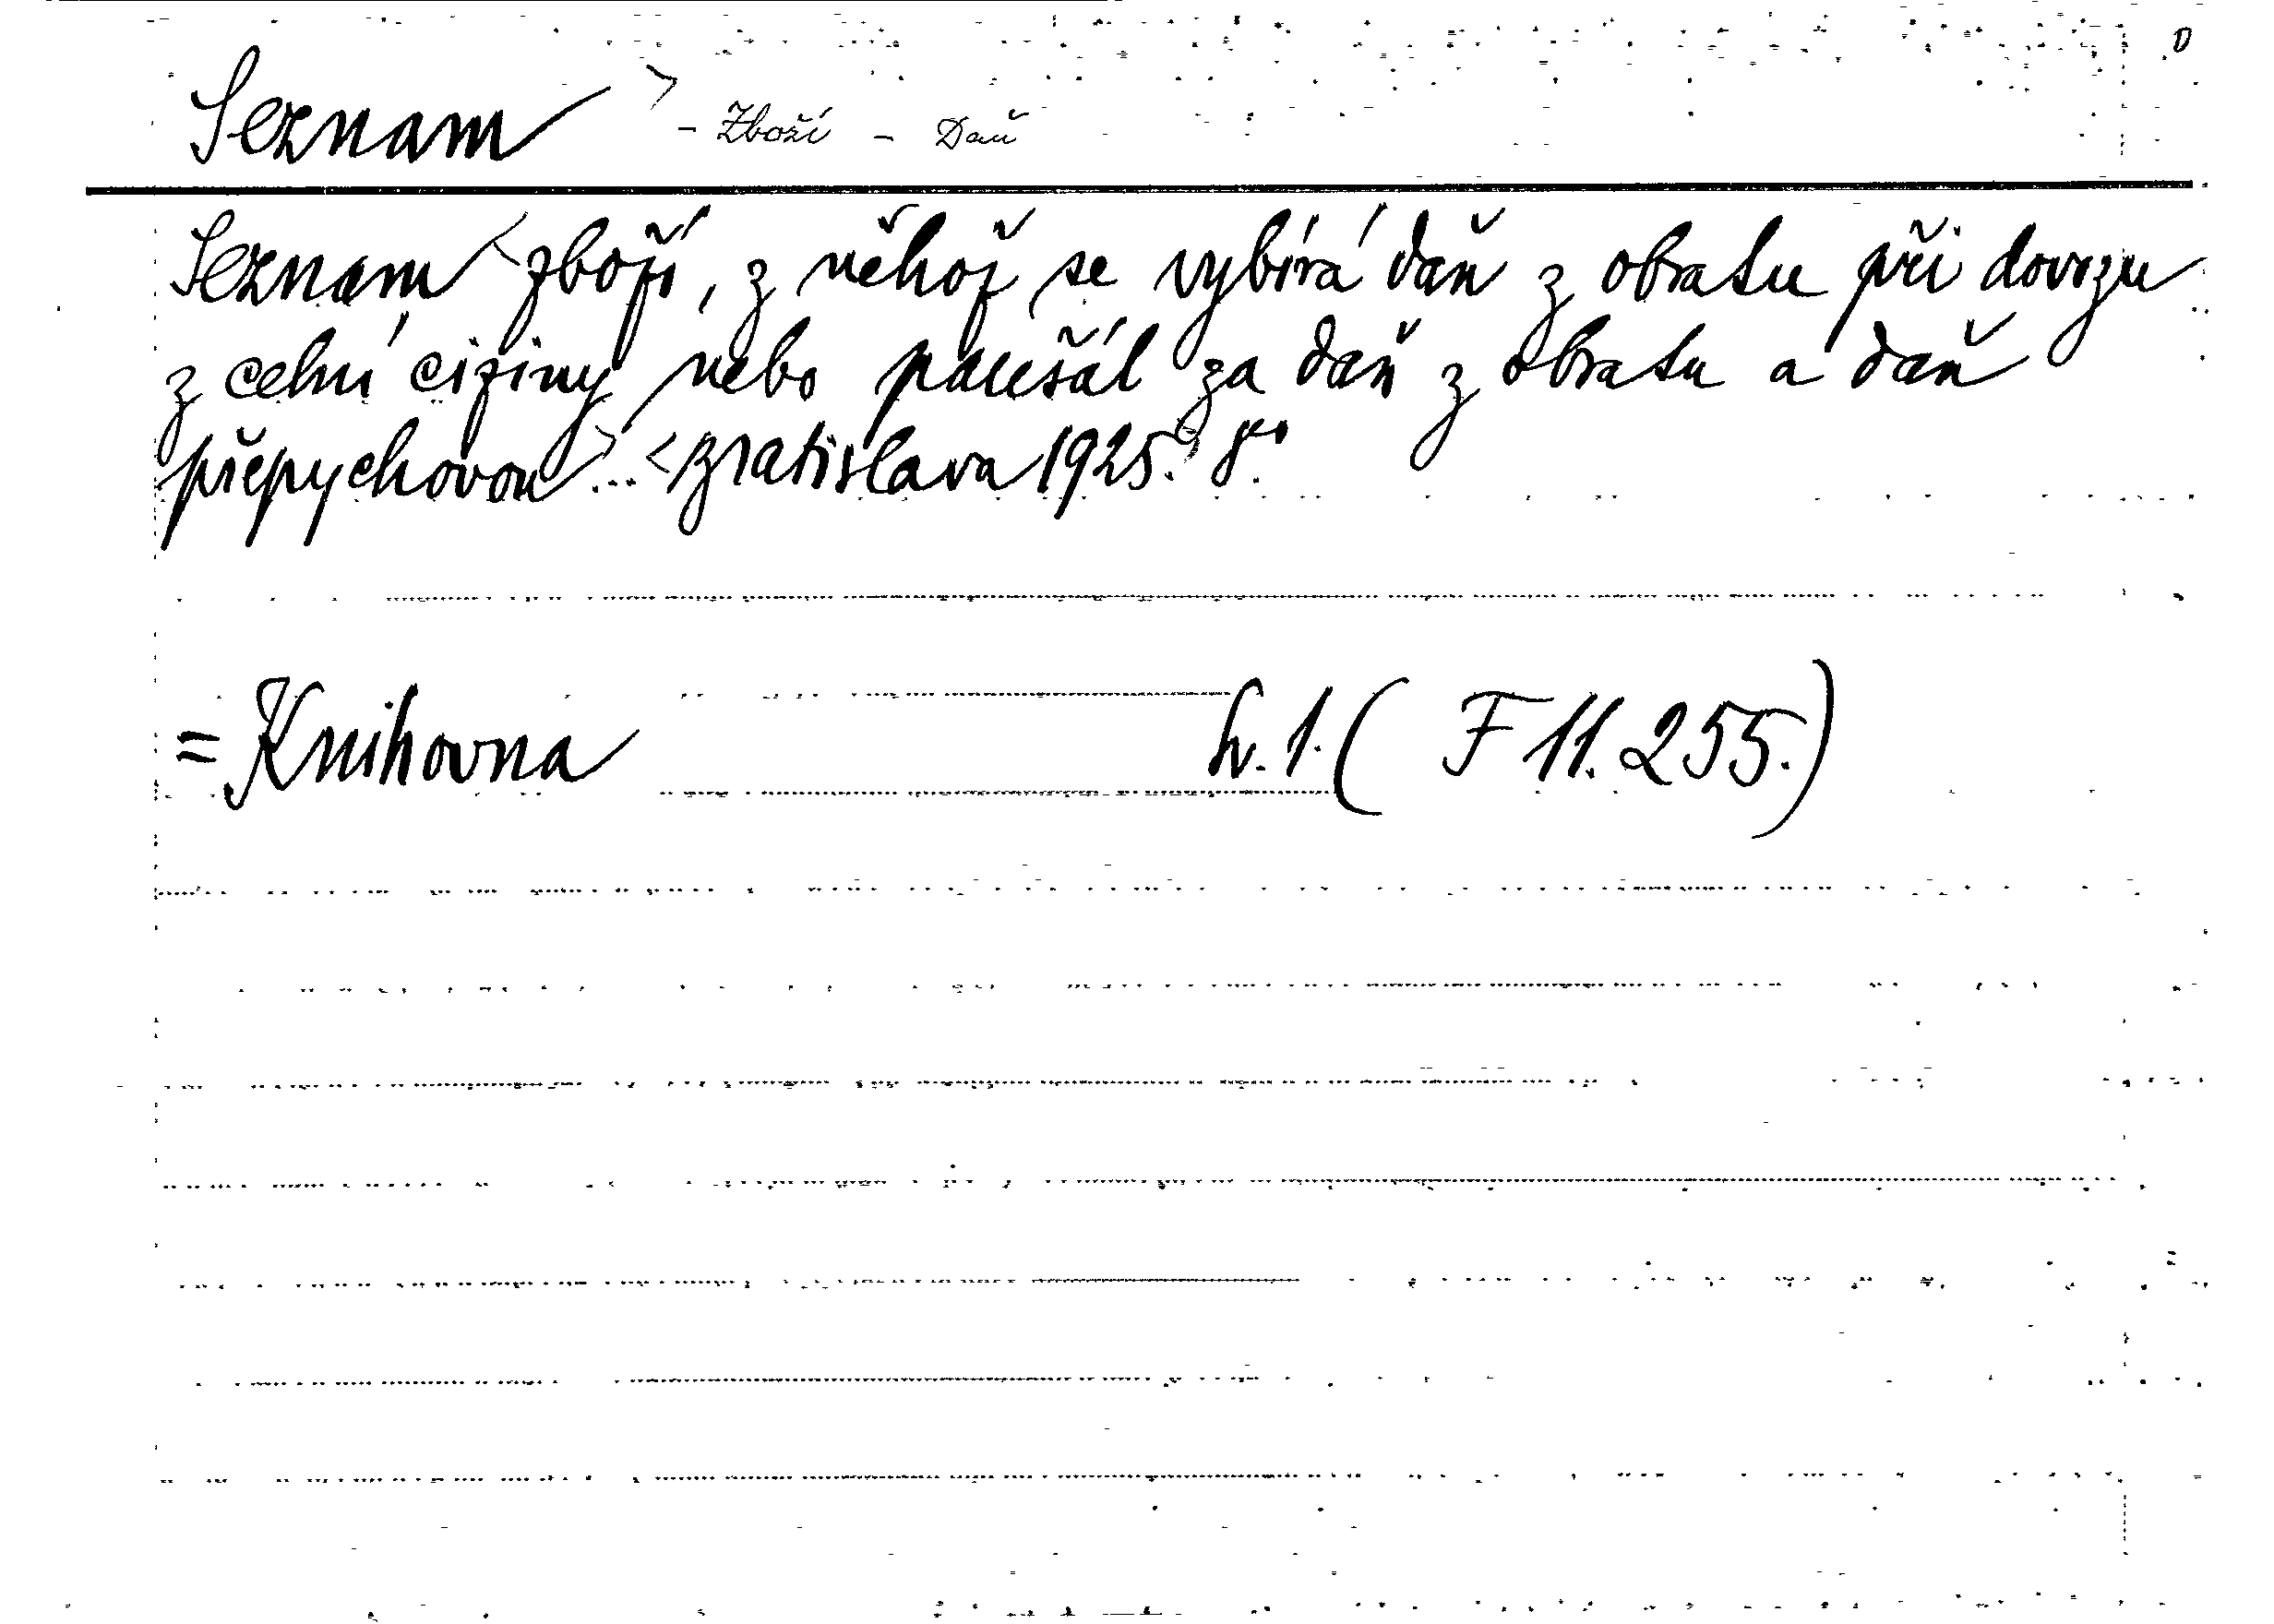 Seznam > - Zboží - Daň
Seznam <zboží, z něhož se vybírá daň z obratu při dovozu
z celní ciziny nebo paušál za daň z obratu a daň
přepychovou> ... <Bratislava 1925.> 8°.
= Knihovna h. 1. ( F 11.255.)